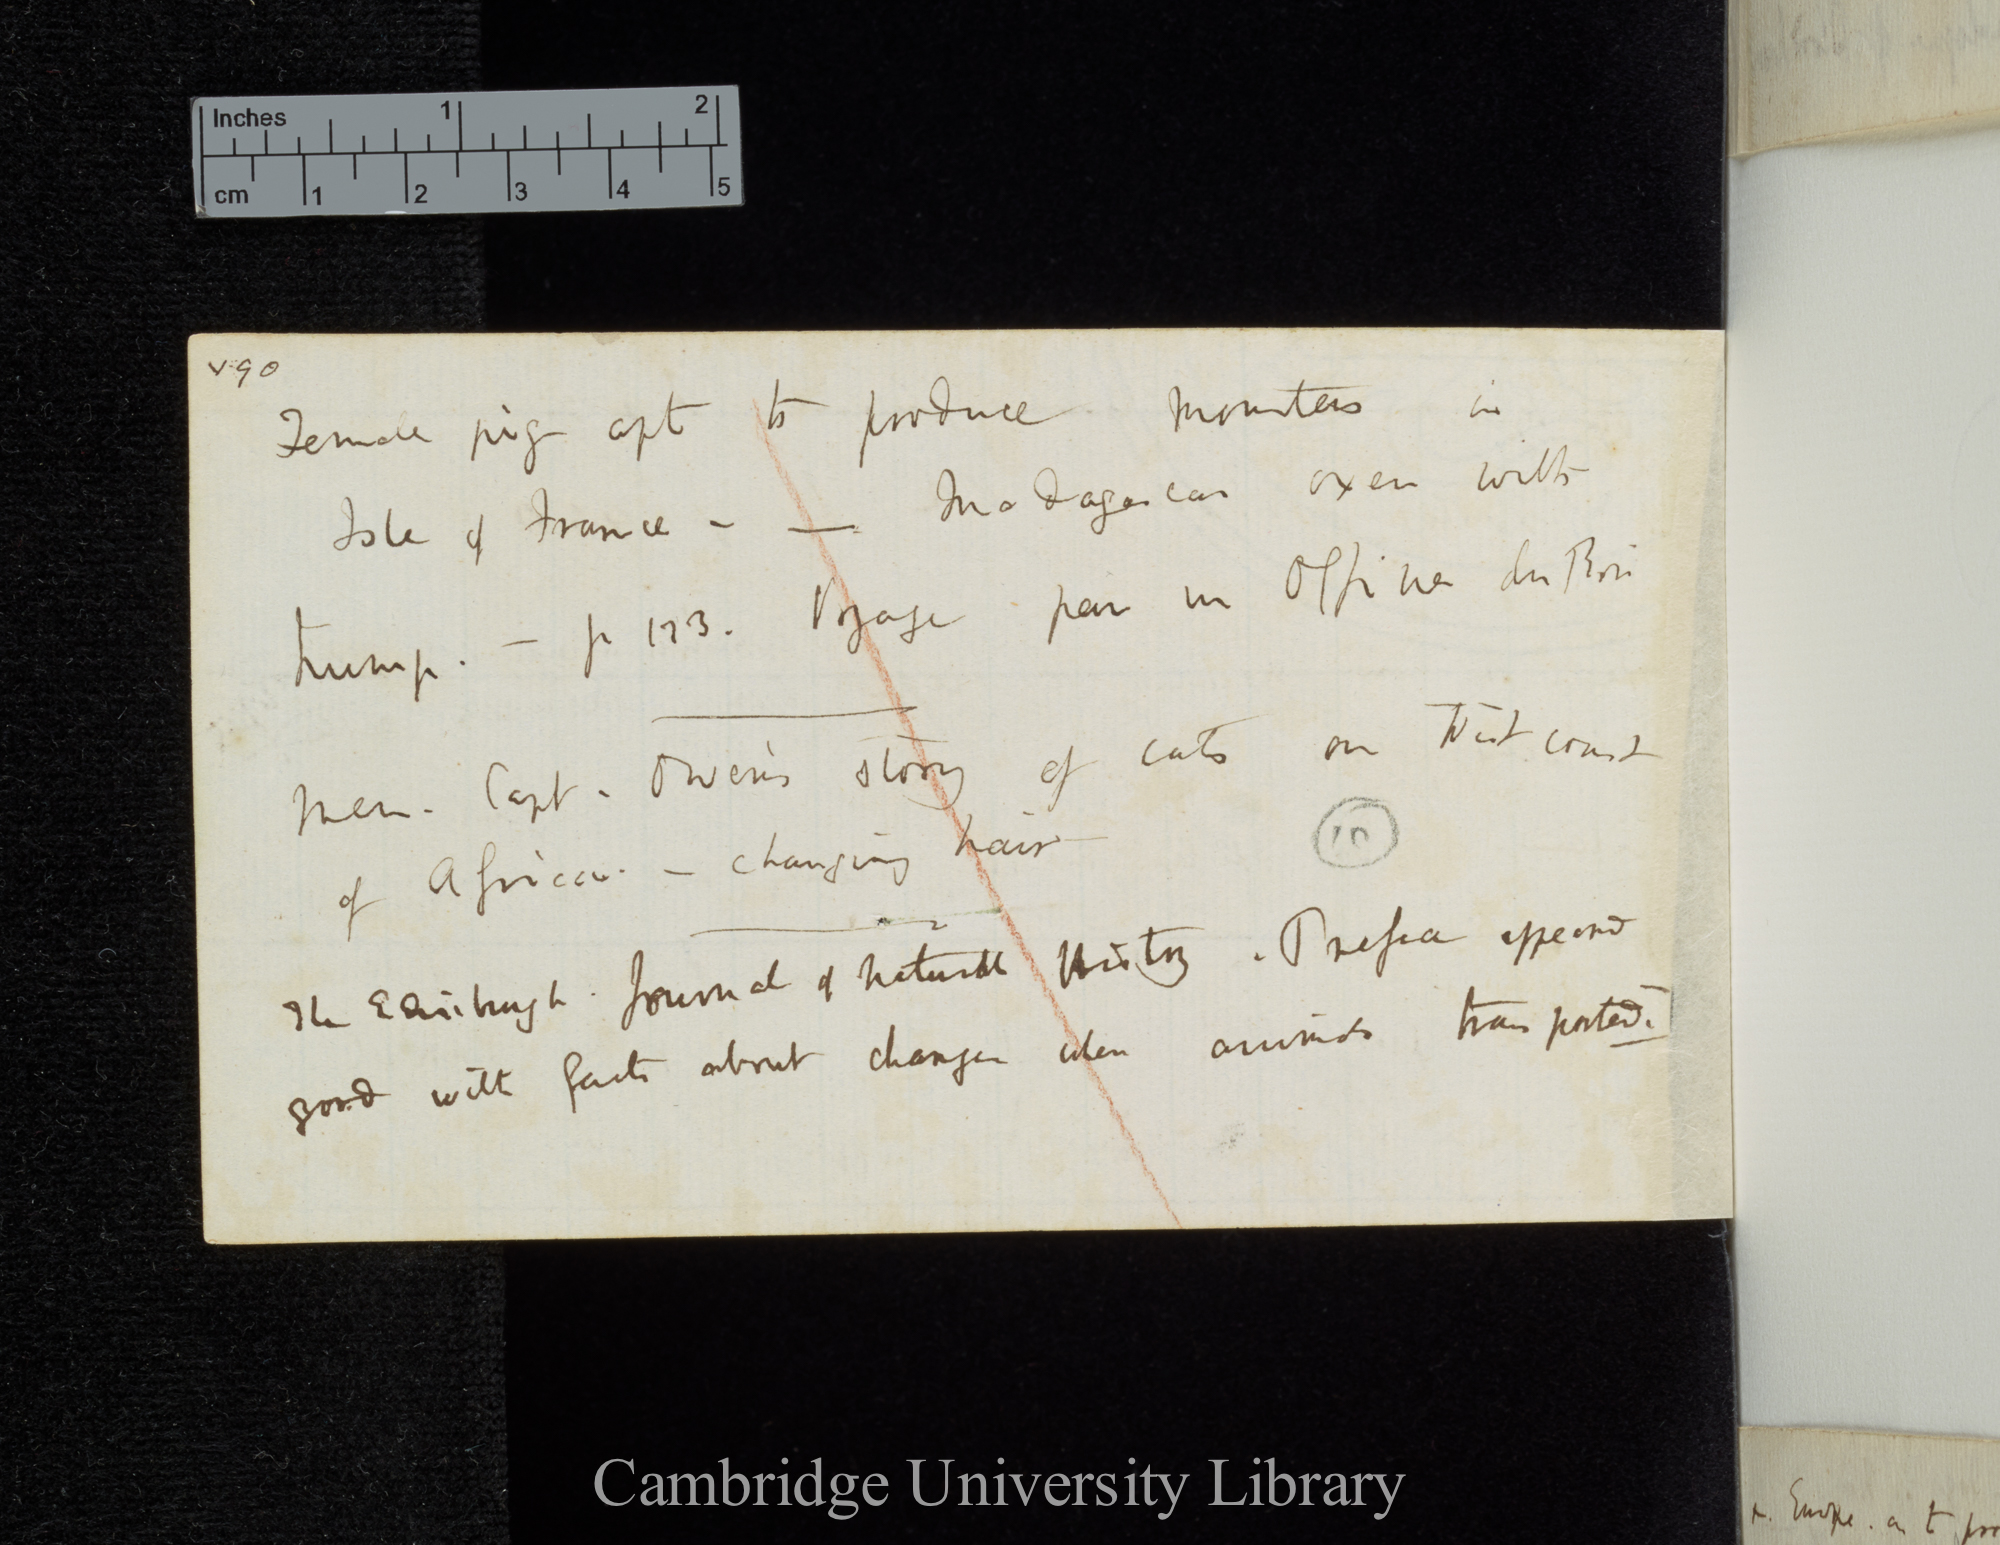 Inches 1 2
cm 1 2 3 4 5
v90
Female pig apt to produce monsters in
Isle of France - — Madagascar oxen with
hump. — p 173. Voyage par un Officier du Roi
Mem. Capt. Owen's story of cats on West coast
of Africa. — changing hair
10
The Edinburgh. Journal of Natural History. Preface appeared
good with facts about changes when animals transported.
Cambridge University Library
Europe. on to